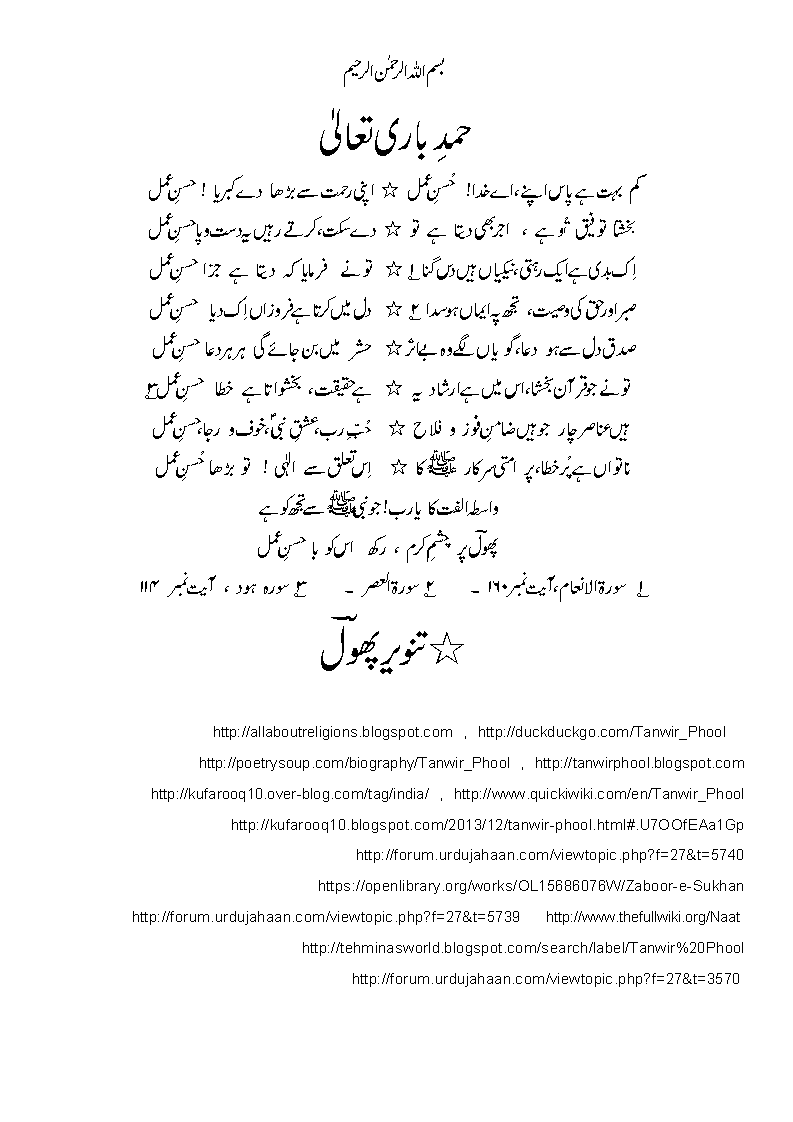 بسم اللہ الرحمٰن الرحیم
حمدِ باری تعالیٰ
کم بہت ہے پاس اپنے ،اے خدا! حُسنِ عمل ☆ اپنی رحمت سے بڑھا دے کبریا ! حسنِ عمل
بخشتا توفیق تُو ہے ، اجر بھی دیتا ہے تو ☆ دے سکت، کرتے رہیں یہ دست و پا حسنِ عمل
اِک بدی ہے ایک رہتی، نیکیاں ہیں دس گنا ۱؂ ☆ تو نے فرمایا کہ دیتا ہے جزا حسنِ عمل
صبر اور حق کی وصیت، تجھ پہ ایماں ہو سدا ۲؂ ☆ دل میں کرتا ہے فروزاں اِک دیا حسنِ عمل
صدق دل سے ہو دعا، گویاں لگے وہ بے اثر ☆ حشر میں بن جائے گی ہر ہر دعا حسنِ عمل
تو نے جو قرآن بخشا، اس میں ہے ارشاد یہ ☆ ہے حقیقت، بخشواتا ہے خطا حسنِ عمل ۳؂
ہیں عناصر چار جو ہیں ضامنِ فوز و فلاح ☆ حُبِّ رب، عشقِ نبیؐ، خوف و رجا، حسنِ عمل
ناتواں ہے پُر خطا، پر امتی سرکار ﷺ کا ☆ اِس تعلق سے الٰہی ! تو بڑھا حُسنِ عمل
واسطہ الفت کا یا رب! جو نبی ﷺ سے تجھ کو ہے
پھولؔ پر چشمِ کرم ، رکھ اس کو با حسنِ عمل
۱؂ سورۃ الانعام، آیت نمبر ۱۶۰ ۔ ۲؂ سورۃ العصر ۔ ۳؂ سورہ ہود ، آیت نمبر ۱۱۴
☆ تنویر پھولؔ
http://allaboutreligions.blogspot.com , http://duckduckgo.com/Tanwir_Phool
http://poetrysoup.com/biography/Tanwir_Phool , http://tanwirphool.blogspot.com
http://kufarooq10.over-blog.com/tag/india/ , http://www.quickiwiki.com/en/Tanwir_Phool
http://kufarooq10.blogspot.com/2013/12/tanwir-phool.html#.U7OOfEAa1Gp
http://forum.urdujahaan.com/viewtopic.php?f=27&t=5740
https://openlibrary.org/works/OL15686076W/Zaboor-e-Sukhan
http://forum.urdujahaan.com/viewtopic.php?f=27&t=5739 http://www.thefullwiki.org/Naat
http://tehminasworld.blogspot.com/search/label/Tanwir%20Phool
http://forum.urdujahaan.com/viewtopic.php?f=27&t=3570